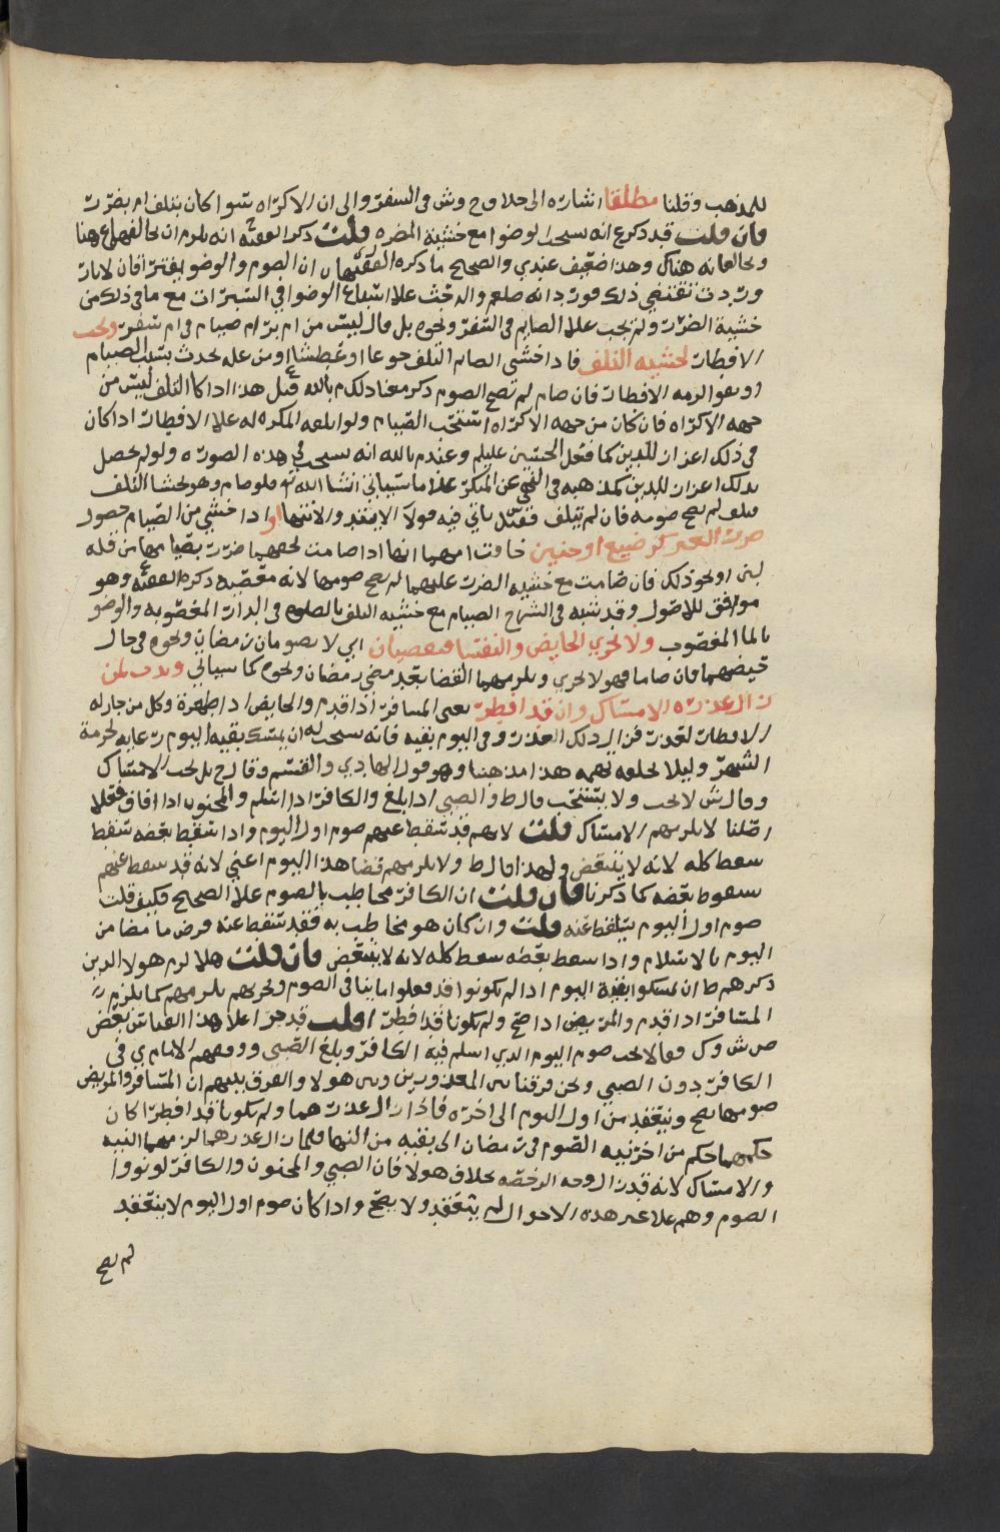 للمذهب وقلنا مطلقا اشاره الى خلاف ح وش في السفر والى ان الاكراه سوا كان بتلف ام بضرر
فان قلت قد ذكر ع انه يستحب الوضوا مع خشية المضره قلت ذكر الفقيه انه يلزم ان يخالفها ع هنا
وخالفانه هناك وهذا ضعيف عندي والصحيح ما ذكره الفقيهان ان الصوم والوضو يفترقان لاثار
وردت تقتضي ذلك فورد انه صلعم والدحث علا اسباغ الوضوا في السبرات مع ما في ذلك من
خشية الضرر ولم يجب علا الصايم في السفر ونحوه بل قال ليس من ام بر ام صيام في ام سفر ويجب
الافطار لخشيه التلف فاذا خشى الصايم التلف جوعا او عطشا او من عله تحدث بسبب الصيام
او نحوا لزمه الافطار فان صام لم يصح الصوم ذكر معنا ذلك م بالله قيل هذا اذا كان التلف ليس من
جهه الاكراه فان كان من جهه الاكراه استحب الصيام ولو اتلفه المكره له علا الافطار اذا كان
في ذلك اعزاز للدين كما فعل الحسين عليلم وعند م بالله انه يستحب في هذه الصوره ولو لم يحصل
بذلك اعزاز للدين كمذهبه في النهي عن المنكر علا ما سياتي انشا الله تع فلو صام وهو يخشا التلف
فتلف لم يصح صومه فان لم يتلف فقيل ياتي فيه قولا الابتدا والانتها او اذا خشي من الصيام حصول
ضرر الغير كرضيع او جنين خافت امهما انها اذا صامت لحقهما ضرر بصيامها من قله
لبن او نحو ذلك فان صامت مع خشيه الضرر عليهما لم يصح صومها لانه معصيه ذكره الفقيه ع وهو
موافق للاصول وقد شبه في الشرح الصيام مع خشيه التلف بالصلوه في الدار المغصوبه والوضو
بالما المغصوب ولا يجزي الحايض والنفسا فيقضيان اي لا يصومان رمضان ونحوه في حال
حيضهما فان صاما فهو لا يجزي ويلزمهما القضا بعد مضي رمضان ونحوه كما سياتي وندب لمن
زال عذره الامساك وان قد افطر يعنى المسافر اذا قدم والحايض اذا طهرة وكل من جاز له
الافطار لعذر فزال ذلك العذر وفي اليوم بقيه فانه يستحب له ان يمسك بقيه اليوم رعايه لحرمة
الشهر وليلا تلحقه تهمه هذا مذهبنا وهو قول الهادي والقسم وقال ح بل يجب الامساك
وقال ش لا يجب ولا يستحب قال ط والصبي اذا بلغ والكافر اذا اسلم والمجنون اذا افاق فعلا
اصلنا لا يلزمهم الامساك قلت لانهم قد سقط عنهم صوم اول اليوم واذا سقط بعضه سقط
سقط كله لانه لا يتبعض ولهذا قال ط ولا يلزمهم قضا هذا اليوم اعني لانه قد سقط عنهم
سقوط بعضه كما ذكرنا فان قلت ان الكافر مخاطب بالصوم علا الصحيح فكيف قلت
صوم اول اليوم يسقط عنه قلت وان كان هو مخاطب به فقد سقط عنه فرض ما مضا من
اليوم بالاسلام واذا سقط بعضه سقط كله لانه لا يتبعض فان قلت هلا لزم هولا الذين
ذكرهم ط ان يمسكوا بقية اليوم اذا لم يكونوا قد فعلوا ما ينافي الصوم ويجزيهم يلزمهم كما يلزم
المسافر اذا قدم والمريض اذا صح ولم يكونا قد افطرا قلت قد جرا علا هذا القياس بعض
ص ش وك فقالا يجب صوم اليوم الذي اسلم فيه الكافر وبلغ الصبي ووافقهم الامام ي في
الكافر دون الصبي ونحن فرقنا بين المعذورين وبين هولا والفرق بينهم ان المسافر والمريض
صومهما يصح وينعقد من اول اليوم الى اخره فاذا زال عذرهما ولم يكونا قد افطرا كان
حكمهما حكم من اخر نيه الصوم في رمضان الى بقيه من النهار فلما زال عذرهما لزمهما النيه
والامساك لانه قد زال وجه الرخصه بخلاف هولا فان الصبي والمجنون والكافر لو نووا
الصوم وهم علا غير هذه الاحوال لم ينعقد ولا يصح واذا كان صوم اول اليوم لا ينعقد
لم يصح